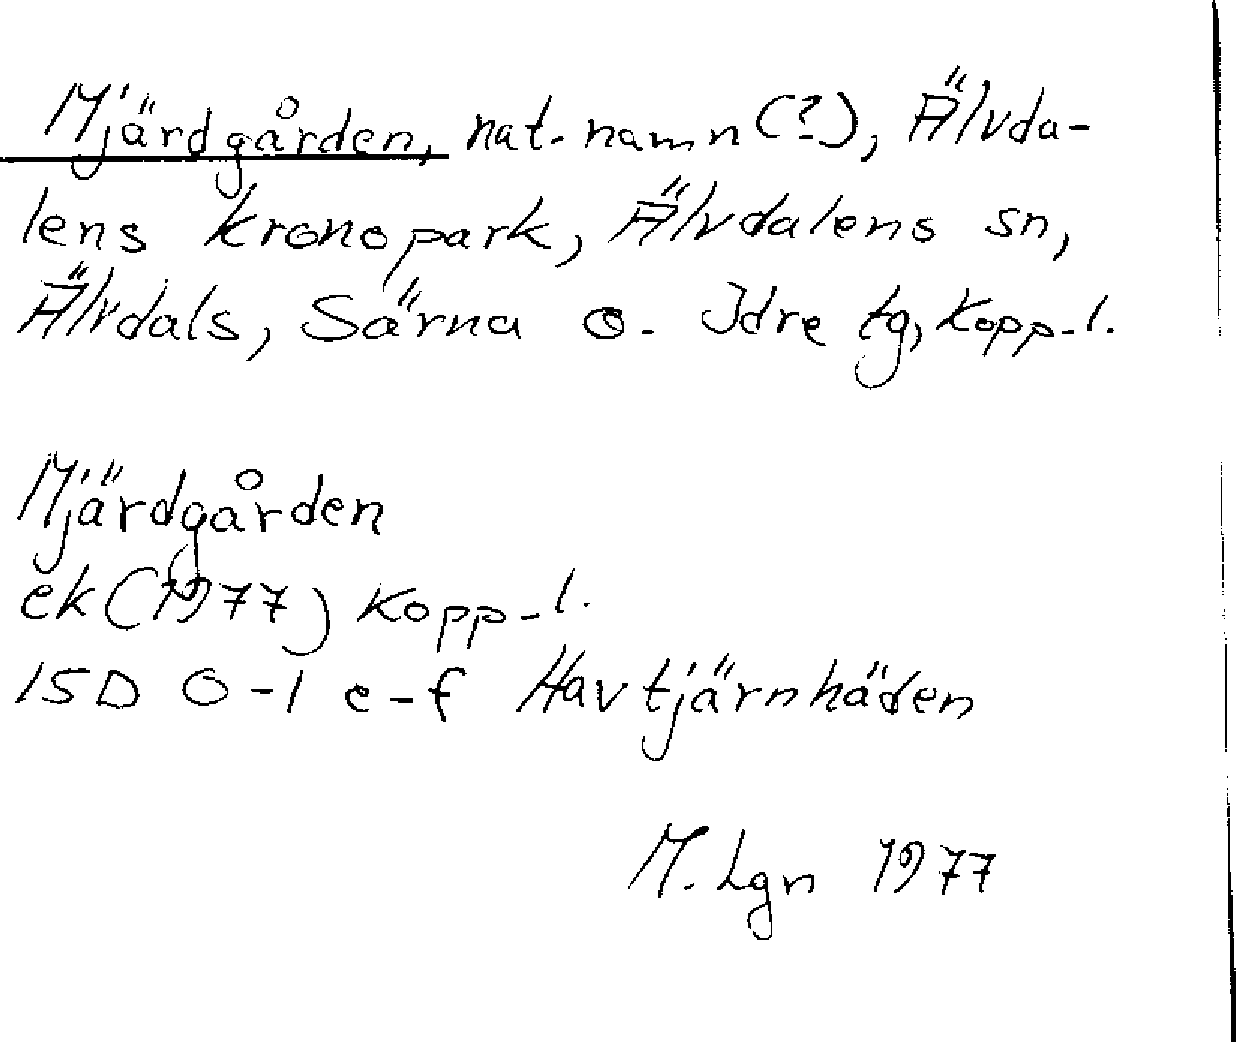 Mjärdgården, nat. namn (?), Älvda-
lens kronopark, Älvdalens sn,
Älvdals, Särna o. Idre tg, Kopp-l.
Mjärdgården
ek (1977) Kopp-l.
15D 0-1 e-f Havtjärnhäden
M. Lgn 1977